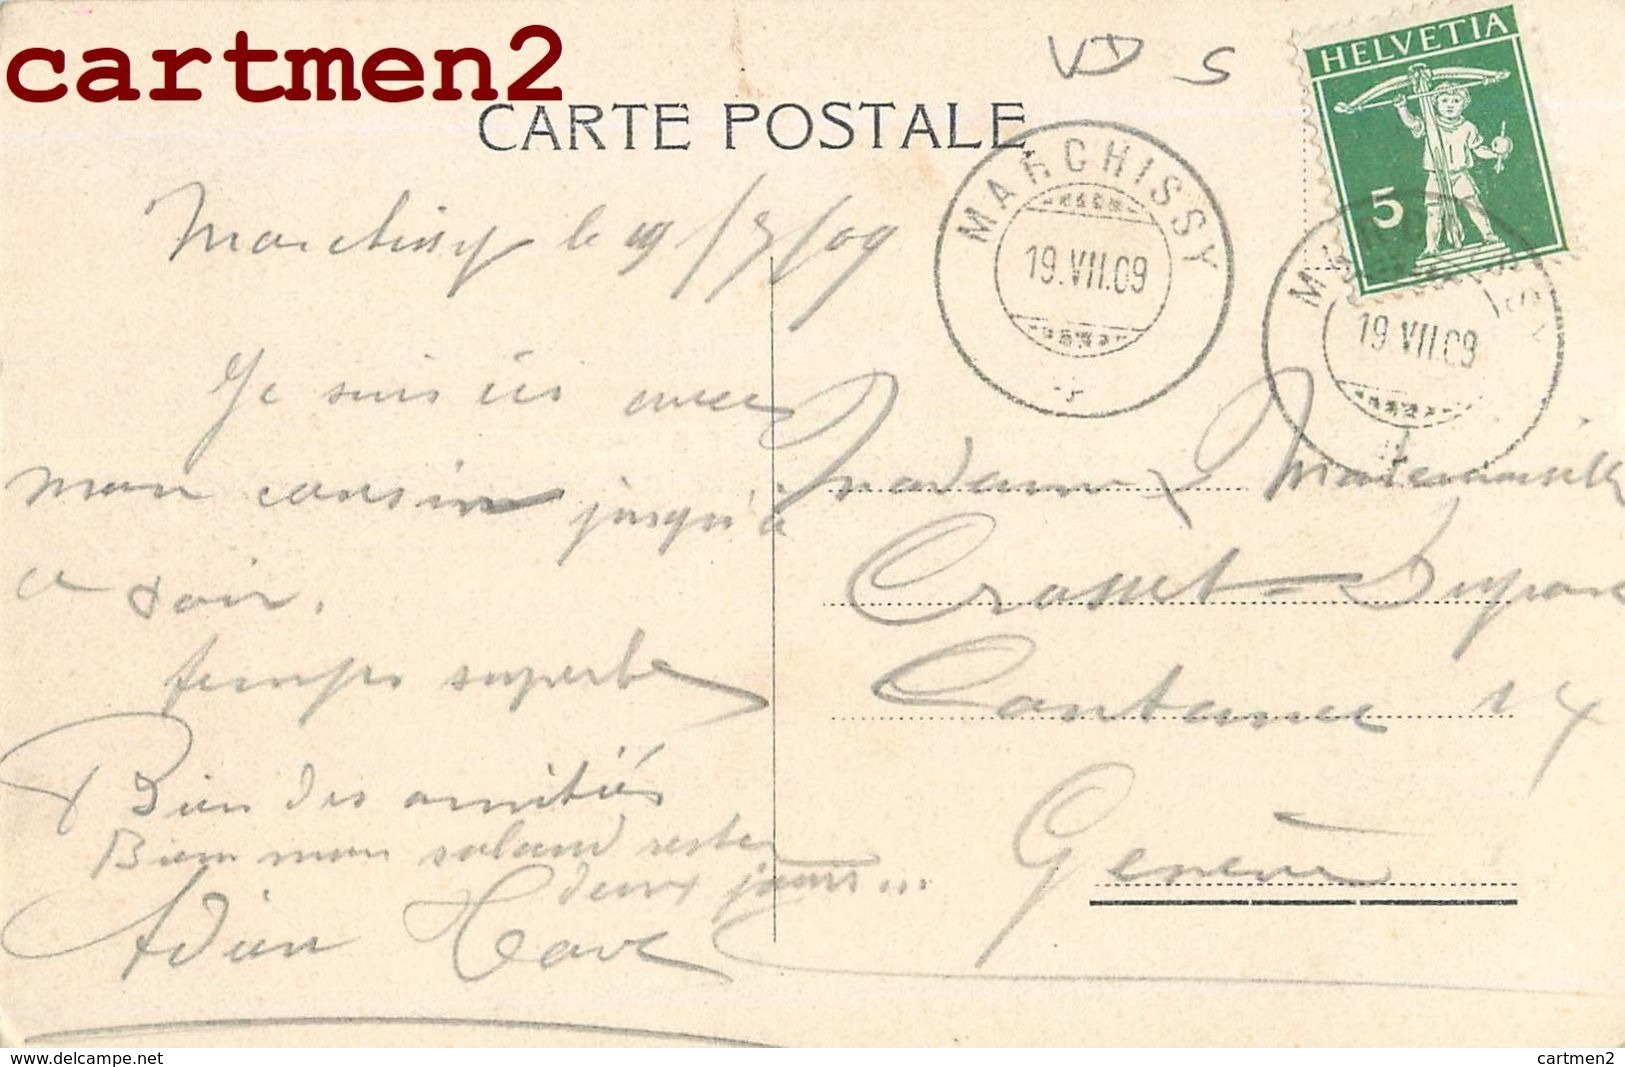 cartmen2
VD S
HELVETIA
5
CARTE POSTALE
MARCHISSY
19.VII.09
MARCHISSY
19.VII.09
Marchissy le 19/7/09
Je suis ici avec
mon cousin jusqu'à
ce soir.
temps superbe
Bien des amitiés
Bien mon salaud reste
deux jours...
Adieu
Madame & Mademoiselle
Crosset-Dupon
Coutance 14
Genève
www.delcampe.net
cartmen2